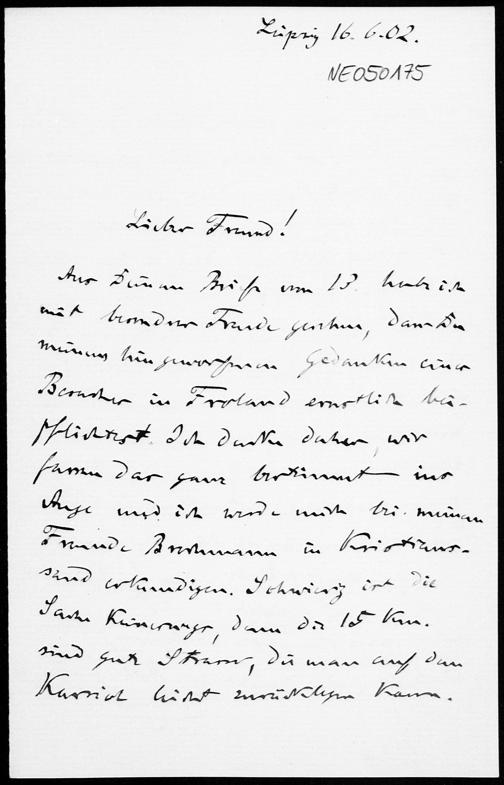 Leipzig 16. 6. 02.
NE050175
Lieber Freund!
Aus Deinem Briefe vom 13. habe ich
mit besonderer Freude gesehen, dass Du
meinem hingeworfenen Gedanken eines
Besuches in Froland ernstlich bei-
pflichtest. Ich denke daher, wir
fassen das ganz bestimmt ins
Auge und ich werde mich bei meinem
Freunde Brochmann in Kristians-
sand erkundigen. Schwierig ist die
Sache keineswegs, denn die 15 km.
sind gute Strasse, die man auf dem
Karriol leicht zurücklegen kann.